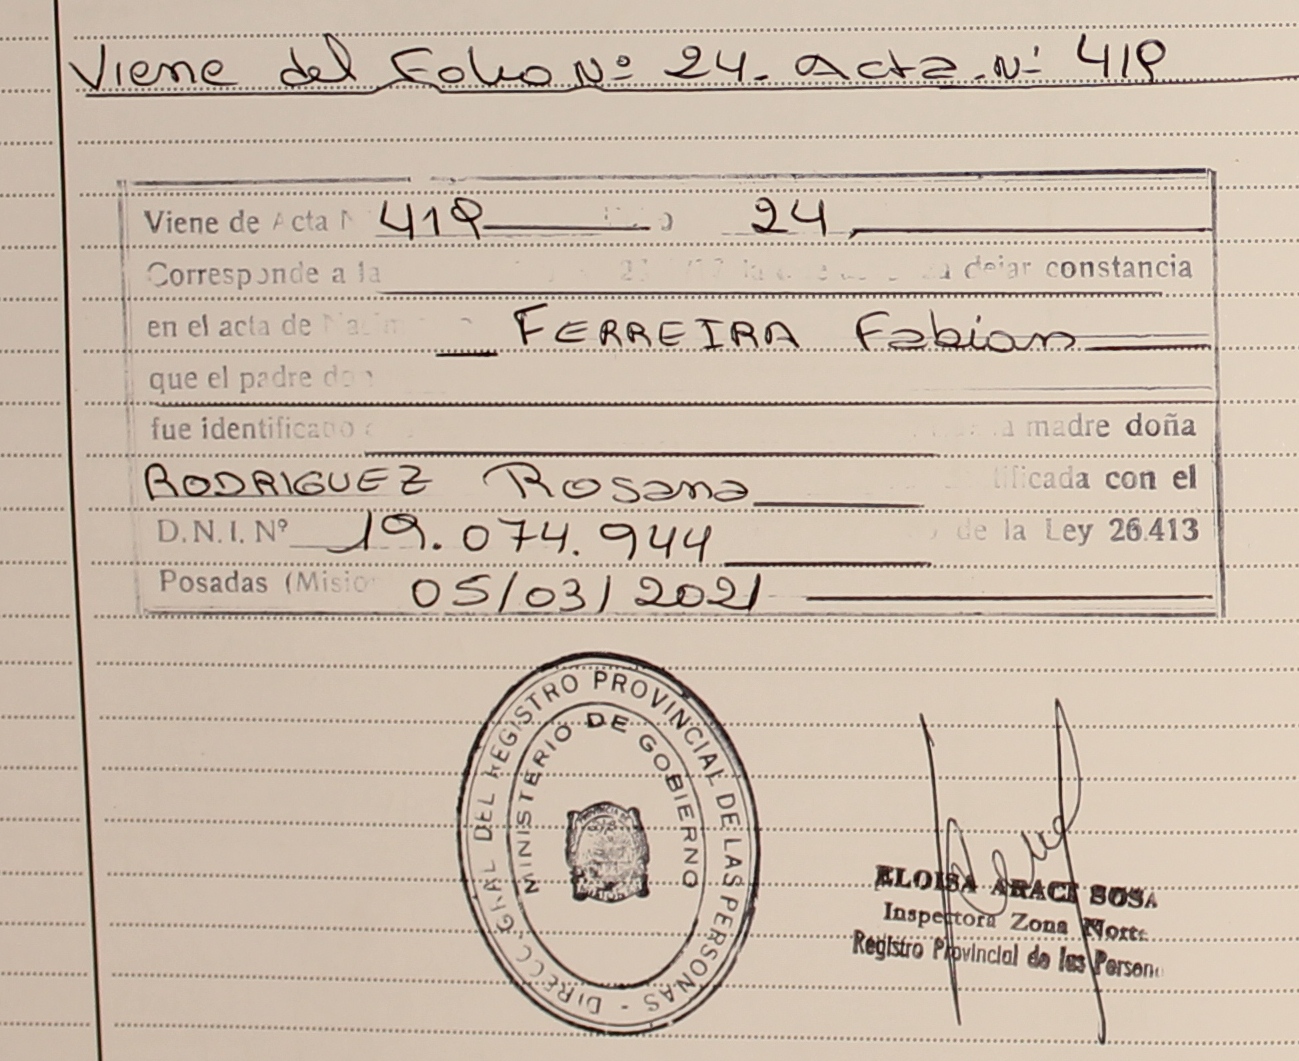 Viene del Folio Nº 24. Acta. Nº 419
Viene de Acta N 419 24
Corresponde a la dejar constancia
en el acta de FERREIRA Fabian
que el padre don
fue identificado madre doña
RODRIGUEZ Rosana ificada con el
D.N.I. Nº 19.074.944 de la Ley 26.413
Posadas (Misio 05/03/2021
DIRECC. GRAL DEL REGISTRO PROVINCIAL DE LAS PERSONAS -
MINISTERIO DE GOBIERNO
ELOISA ARACI SOSA
Inspectora Zona Norte
Registro Provincial de las Persona